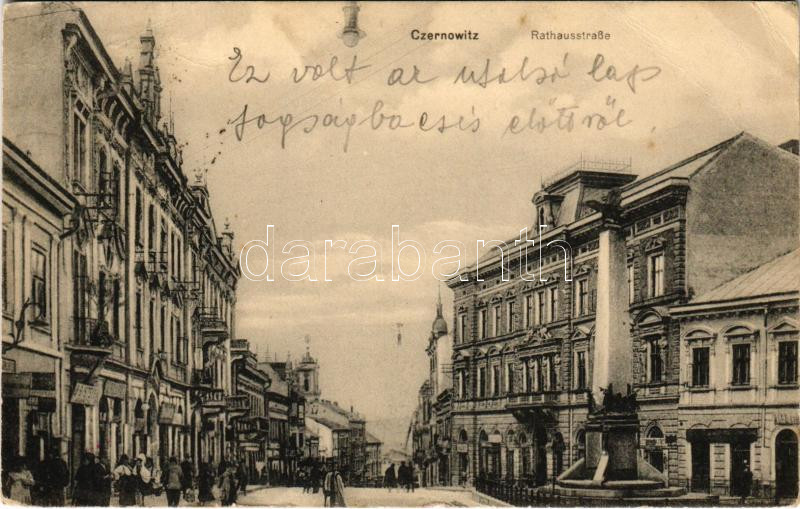 Czernowitz Rathausstraße
Ez volt az utolsó lap
fogságba esés előttről.
darabanth